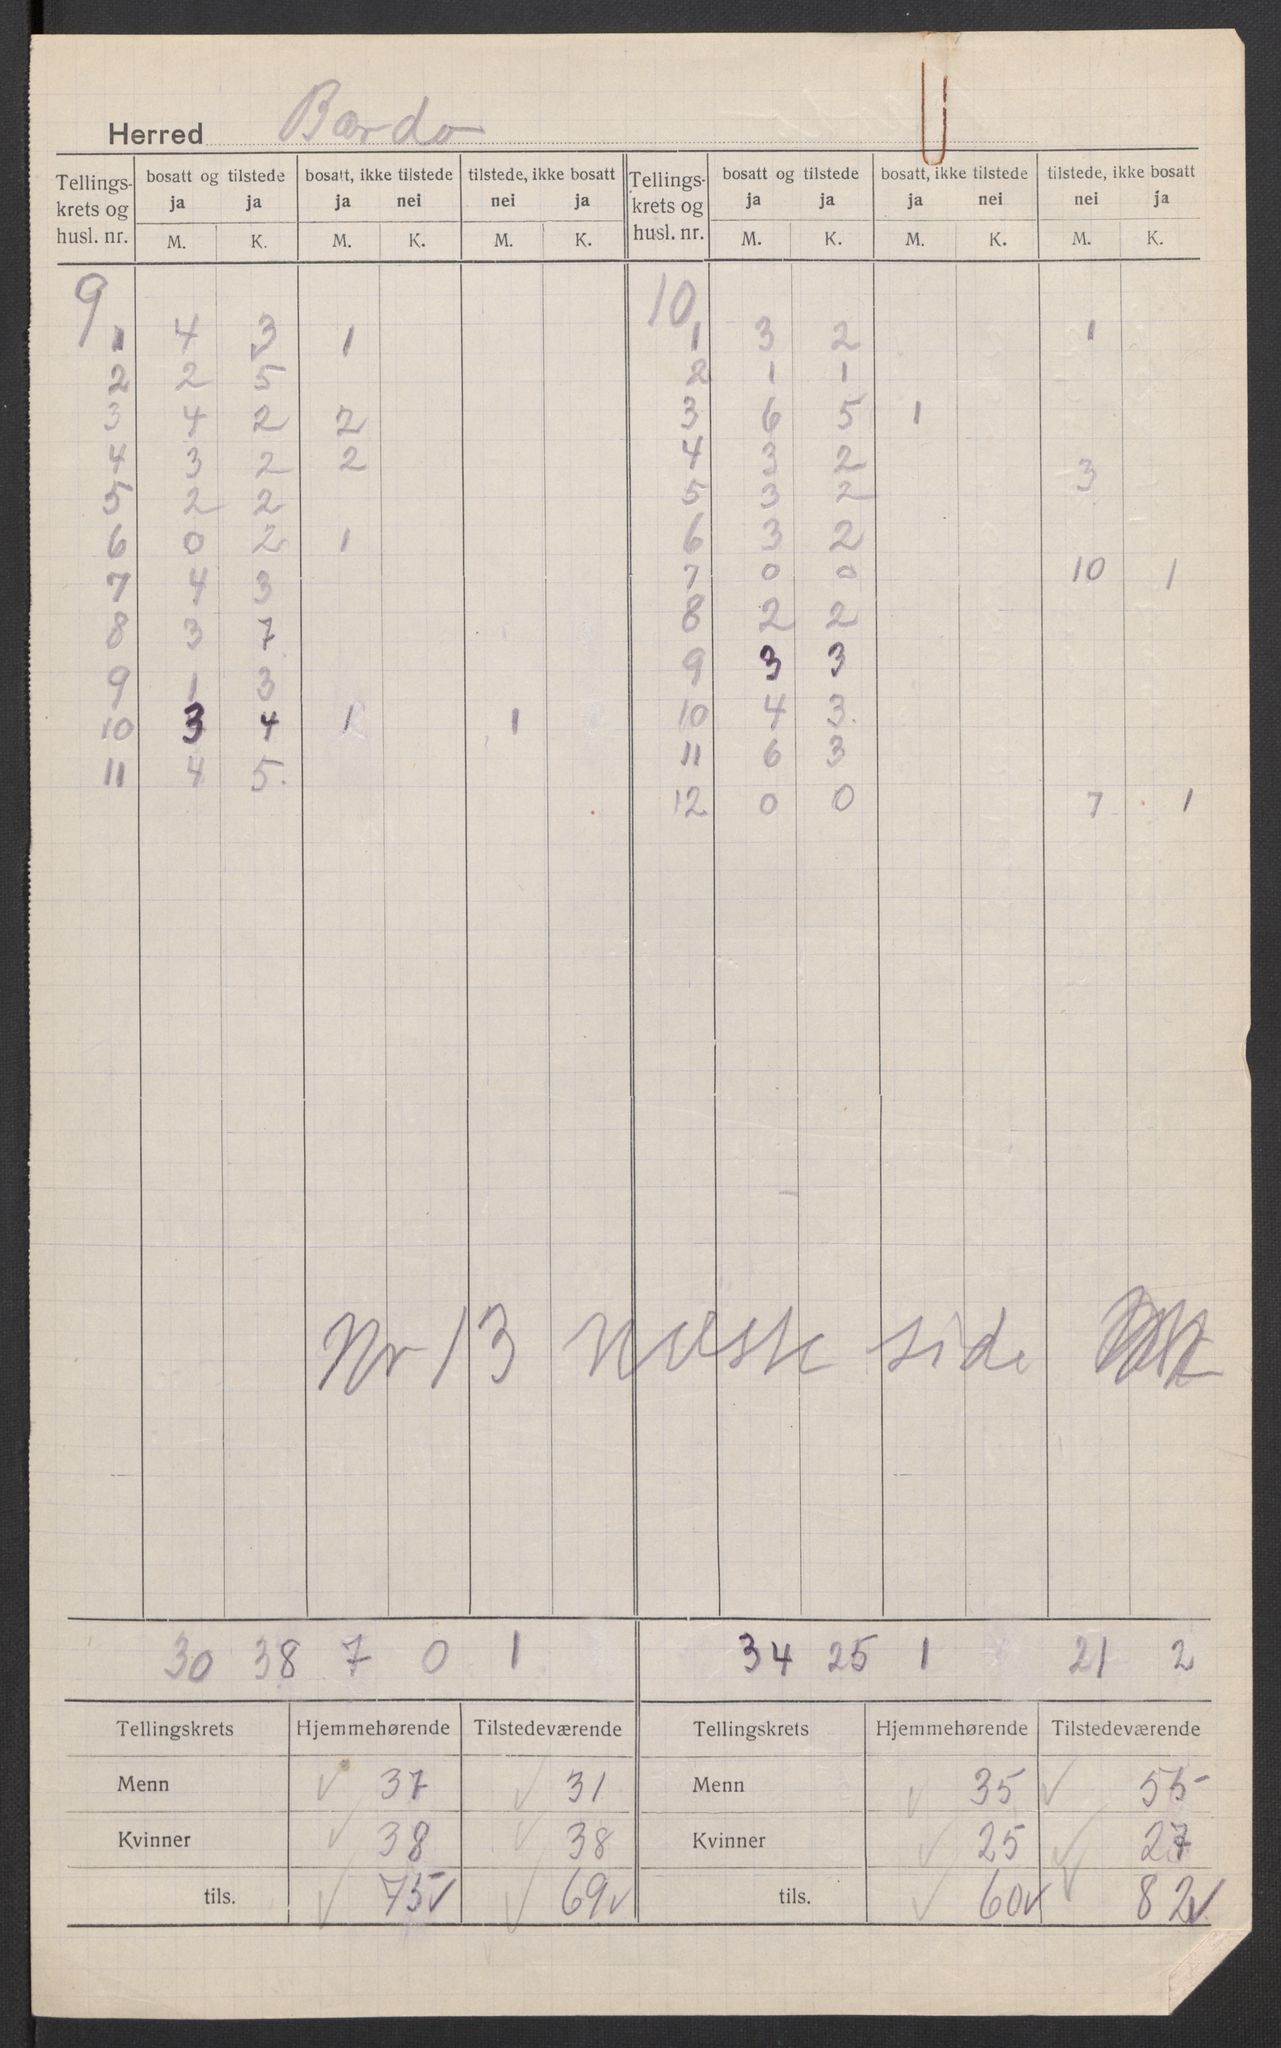 Herred Bardo
Tellings-krets og husl. nr. | bosatt og tilstede ja ja | bosatt, ikke tilstede ja nei | tilstede, ikke bosatt nei ja | Tellings-krets og husl. nr. | bosatt og tilstede ja ja | bosatt, ikke tilstede ja nei | tilstede, ikke bosatt nei ja
M. K. M. K. M. K. M. K. M. K. M. K.
9 10
1 4 3 1 1 3 2 1
2 2 5 2 1 1
3 4 2 2 3 6 5 1
4 3 2 2 4 3 2 3
5 2 2 5 3 2
6 0 2 1 6 3 2
7 4 3 7 0 0 10 1
8 3 7 8 2 2
9 1 3 9 3 3
10 3 4 1 1 10 4 3
11 4 5 11 6 3
12 0 0 7 1
Nr 13 næste side
30 38 7 0 1 34 25 1 21 2
Tellingskrets Hjemmehørende Tilstedeværende Tellingskrets Hjemmehørende Tilstedeværende
Menn ✓ 37 ✓ 31 Menn ✓ 35 ✓ 55
Kvinner ✓ 38 ✓ 38 Kvinner ✓ 25 ✓ 27
tils. ✓ 75✓ ✓ 69✓ tils. ✓ 60✓ ✓ 82✓